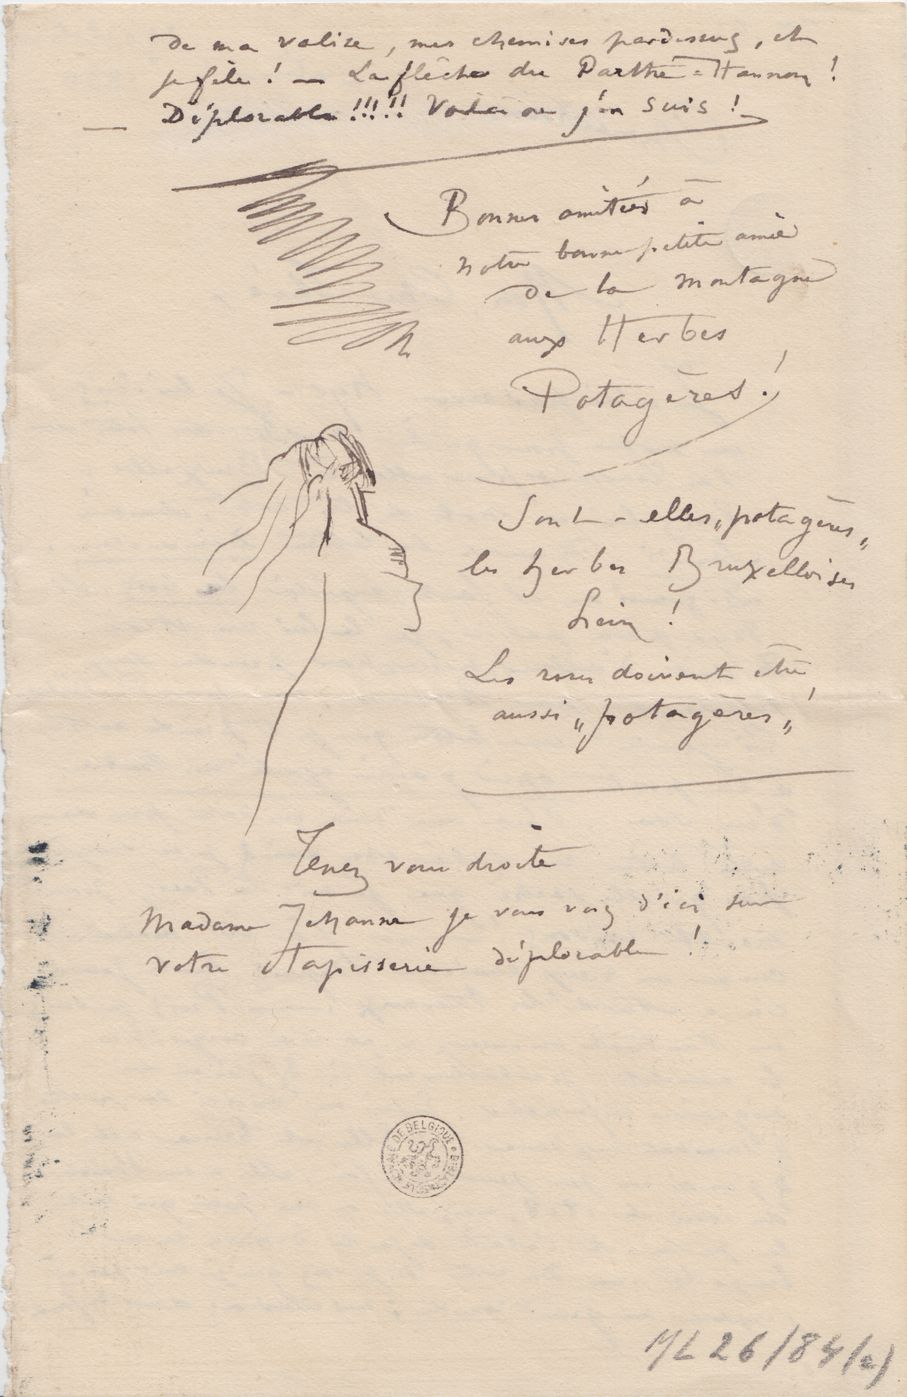 de ma valise, mes chemises pardessus, et
je file ! — La flèche du Parthe = Hannon !
— Déplorable !!!!! Voilà où j'en suis !
Bonnes amitiés à
notre bonne petite amie
de la montagne
aux Herbes
Potagères !
Sont-elles „potagères„
les herbes Bruxelloises
hein !
Les roses doivent être
aussi „potagères„ !
Tenez vous droite
Madame Jehanne je vous vois d'ici sur
votre tapisserie déplorable !
ML 26/84/2)